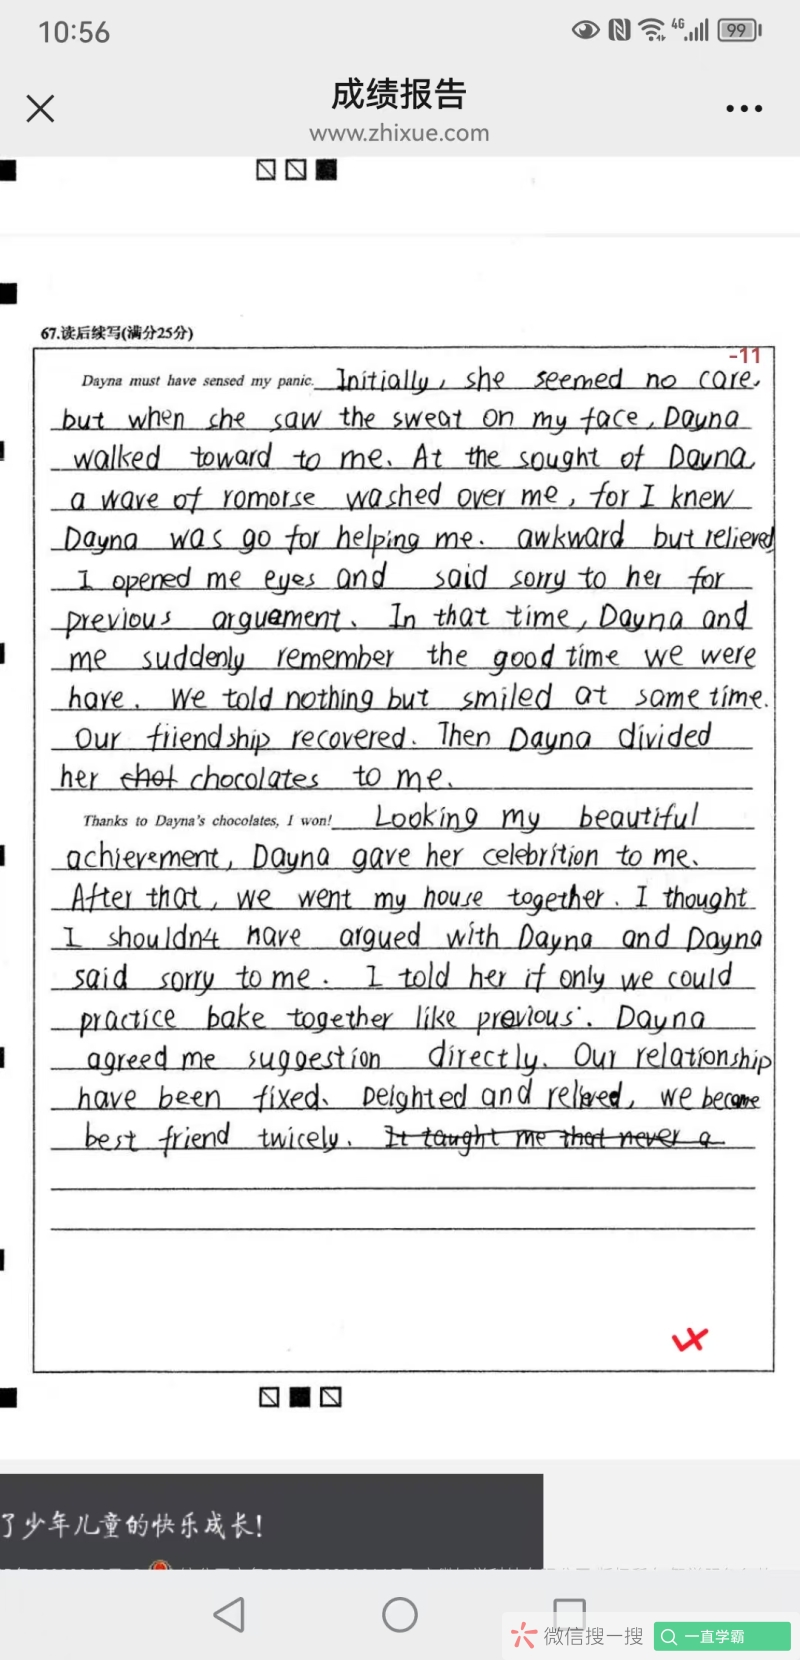 10:56
4G
99
成绩报告
www.zhixue.com
67.读后续写(满分25分)
-11
Dayna must have sensed my panic. Initially, she seemed no care,
but when she saw the sweat on my face, Dayna
walked toward to me. At the sought of Dayna,
a wave of romorse washed over me, for I knew
Dayna was go for helping me. awkward but relieved
I opened me eyes and said sorry to her for
previous arguement. In that time, Dayna and
me suddenly remember the good time we were
have. We told nothing but smiled at same time.
Our friendship recovered. Then Dayna divided
her chot chocolates to me.
Thanks to Dayna's chocolates, I won! Looking my beautiful
achievement, Dayna gave her celebrition to me.
After that, we went my house together. I thought
I shouldn't have argued with Dayna and Dayna
said sorry to me. I told her if only we could
practice bake together like previous. Dayna
agreed me suggestion directly. Our relationship
have been fixed. Deighted and relieved, we become
best friend twicely. It taught me that never a
了少年儿童的快乐成长!
微信搜一搜
一直学霸